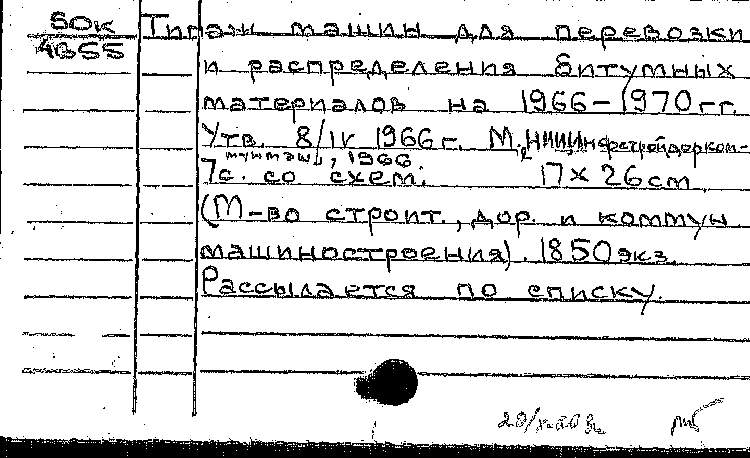 50к
4355
Типаж машин для перевозки
и распределения битумных
материалов на 1966-1970 гг.
Утв. 8/IV 1966 г. М., НИИИнфстройдорком-
мунмаш, 1966.
7с. со схем. 17×26 cm.
(М-во строит., дор. и коммун
машиностроения). 1850 экз.
Рассылается по списку.